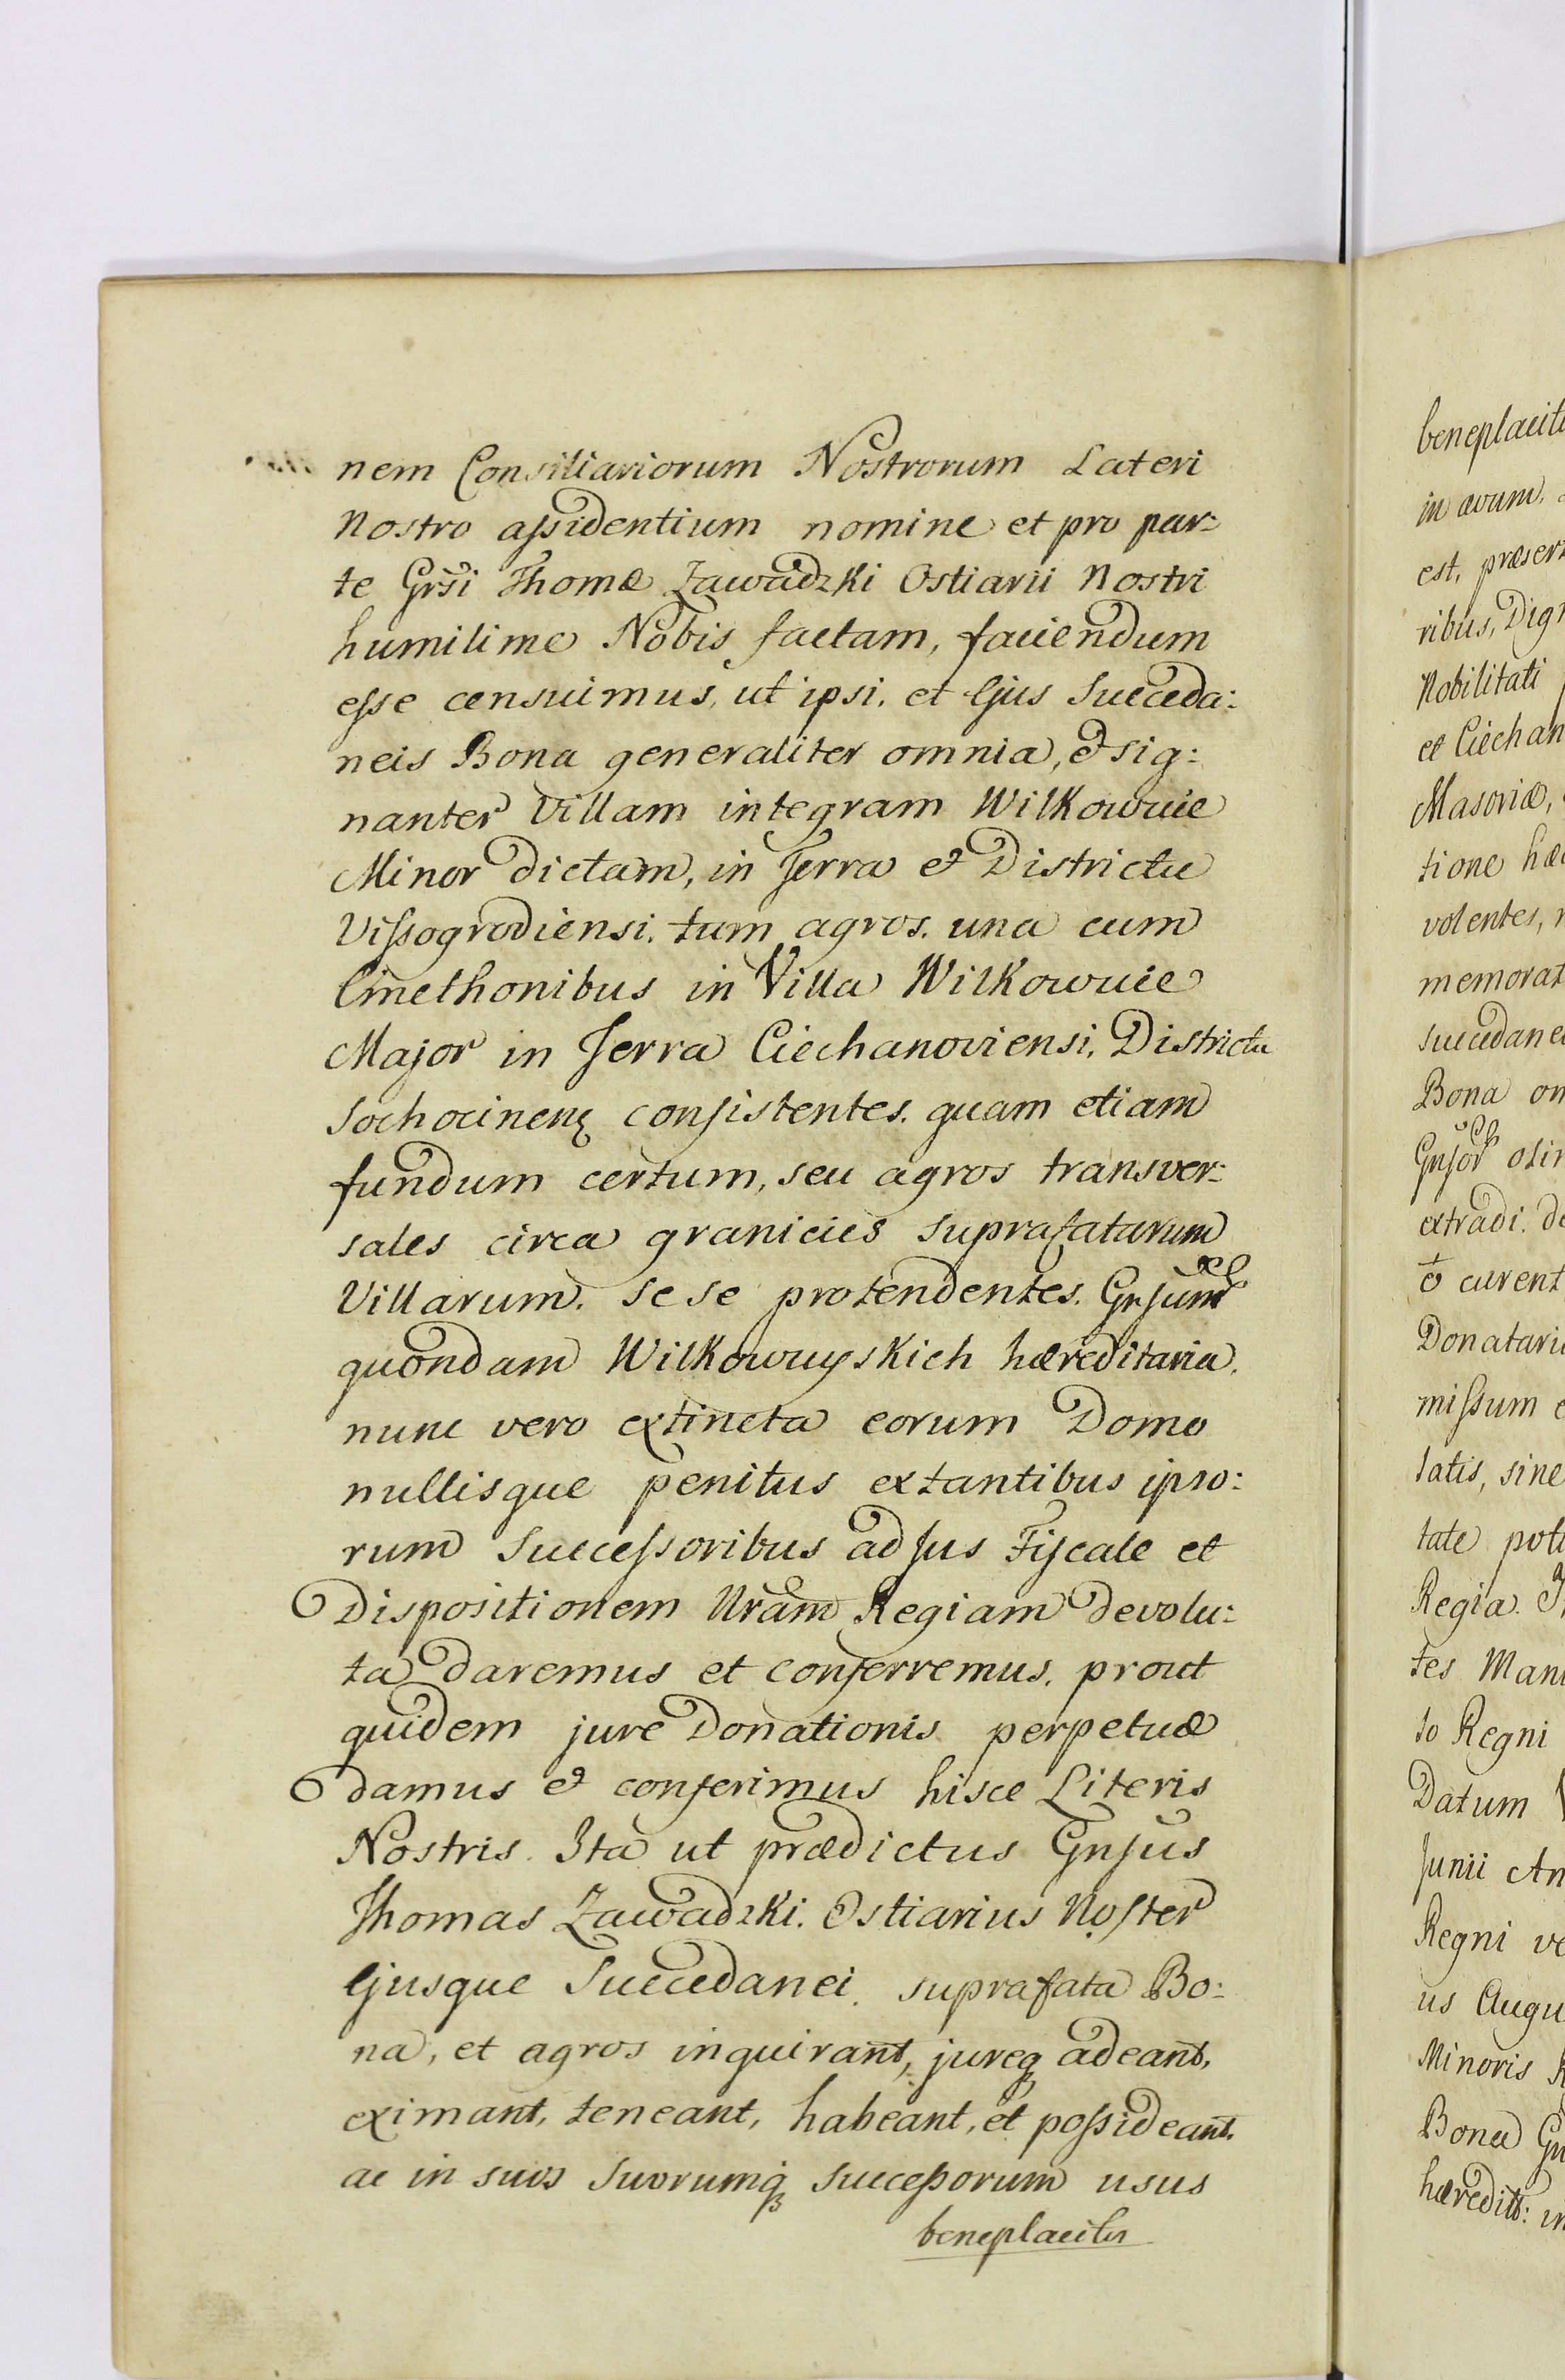 nem Consiliariorum Nostrorum Lateri
Nostro assidentium nomine et pro par:
te Grsi Thomæ Zawadzki Ostiarii Nostri
humilime Nobis factam, faciendum
esse censuimus, ut ipsi, et Ejus Succeda:
neis Bona generaliter omnia, et sig:
nanter Villam integram Wilkowuie
Minor dictam, in Terra et Districtu
Vissogrodiensi, tum agros, una cum
Cmethonibus in Villa Wilkowuie
Major in Terra Ciechanoviensi, Districtu
Sochocinenς consistentes, quam etiam
fundum certum, seu agros transver:
sales circa granicies suprafatarum
Villarum, se se protendentes, Gnsum
quondam Wilkowuyskich hæreditaria,
nunc vero extincta eorum Domo
nullisque penitus extantibus ipso:
rum Successoribus ad Jus Fiscale et
Dispositionem Nram Regiam devolu:
ta daremus et conferremus, prout
quidem jure Donationis perpetuæ
damus et conferimus hisce Literis
Nostris. Ita ut prædictus Gnsus
Thomas Zawadzki, Ostiarius Noster
Ejusque Succedanei, suprafata Bo:
na, et agros inquirant, jureq adeant,
eximant, teneant, habeant, et possideant,
ac in suos Suorumq Successorum usus
beneplacitos
beneplaciti
in ævum,
est, præser
ribus, Dign
Nobilitati
et Ciechan
Masoviæ,
tione hæ
volentes,
memorat
succedane
Bona om
Gnsor olim
extradi, de
curent
Donatari
missum
latis, sine
tate
Regia.
tes Man
to Regni
Datum
Junii An
Regni ve
us Augu
Minoris
Bona Gn
hæredit: in